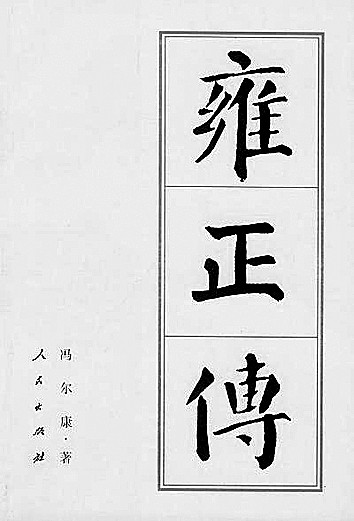 雍正傳
冯尔康·著
人民出版社